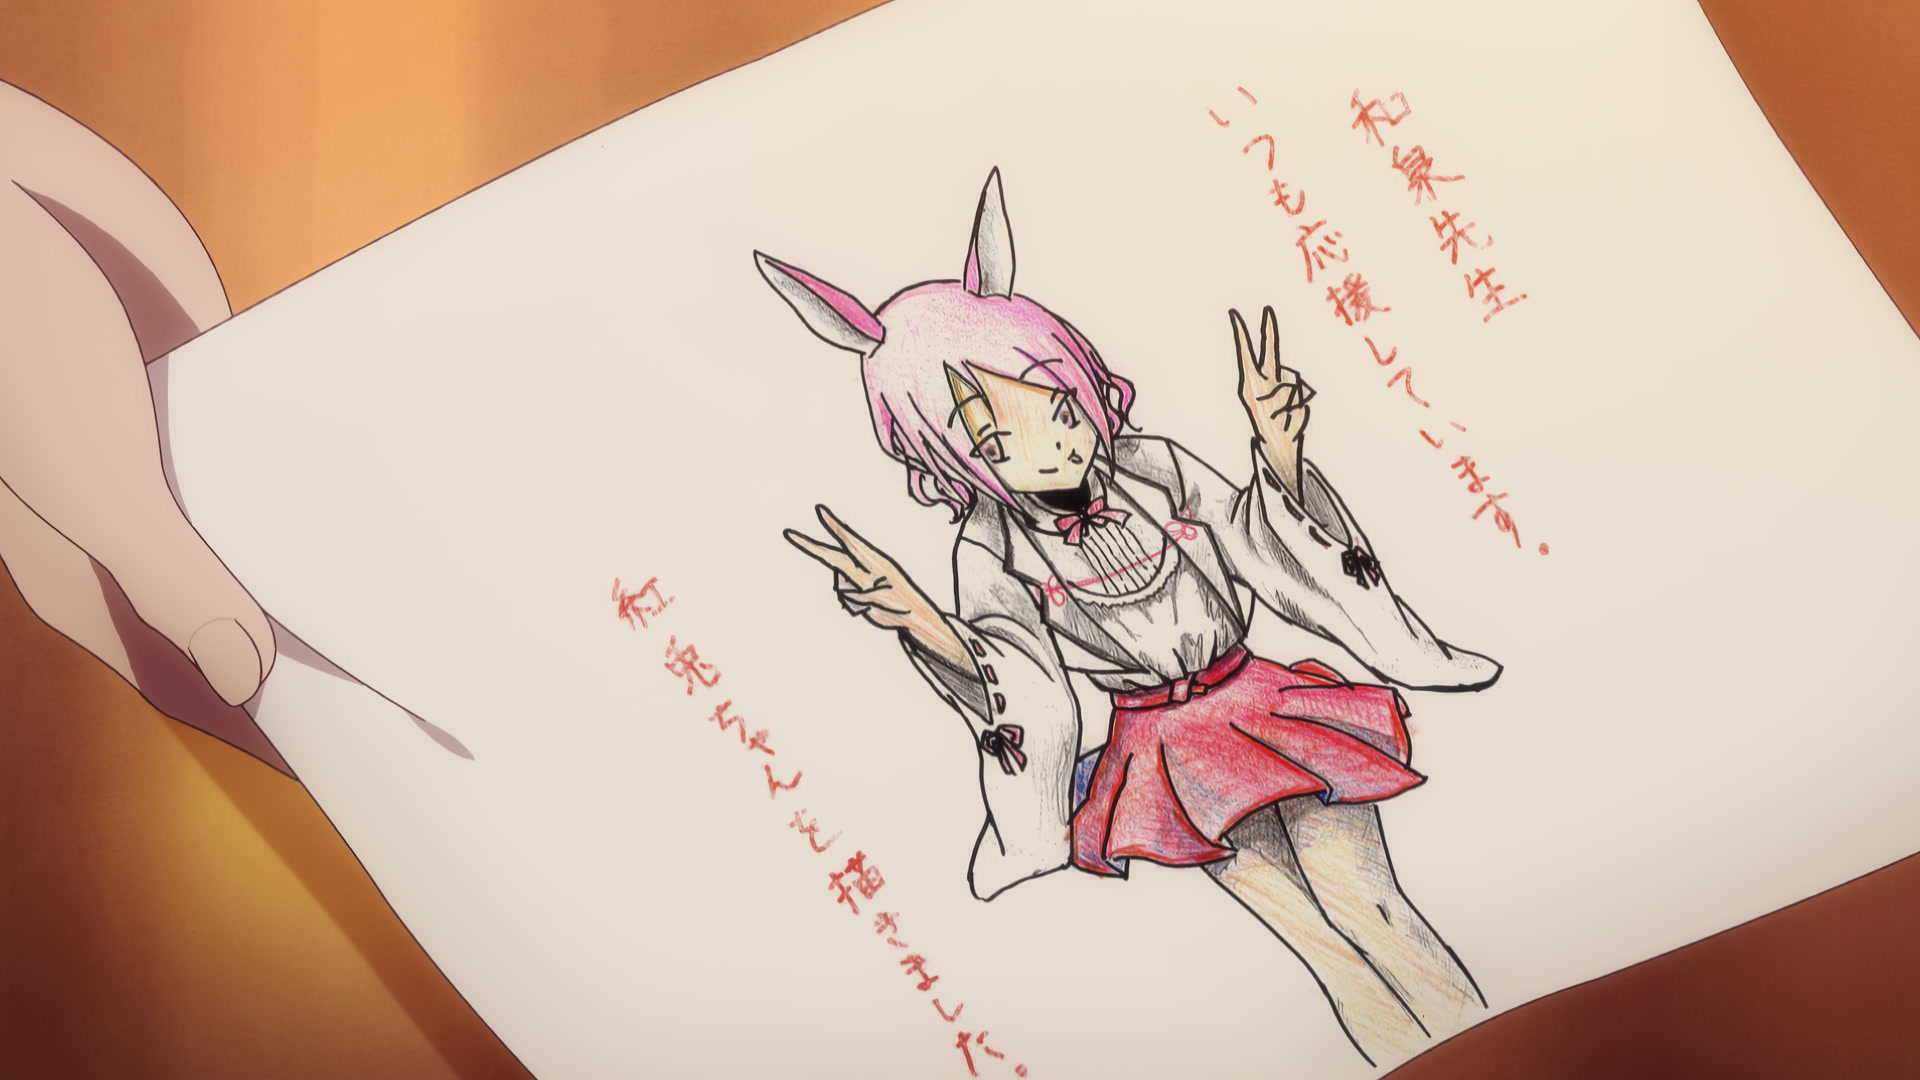 和泉先生
いつも応援しています。
紅兎ちゃんを描きました。